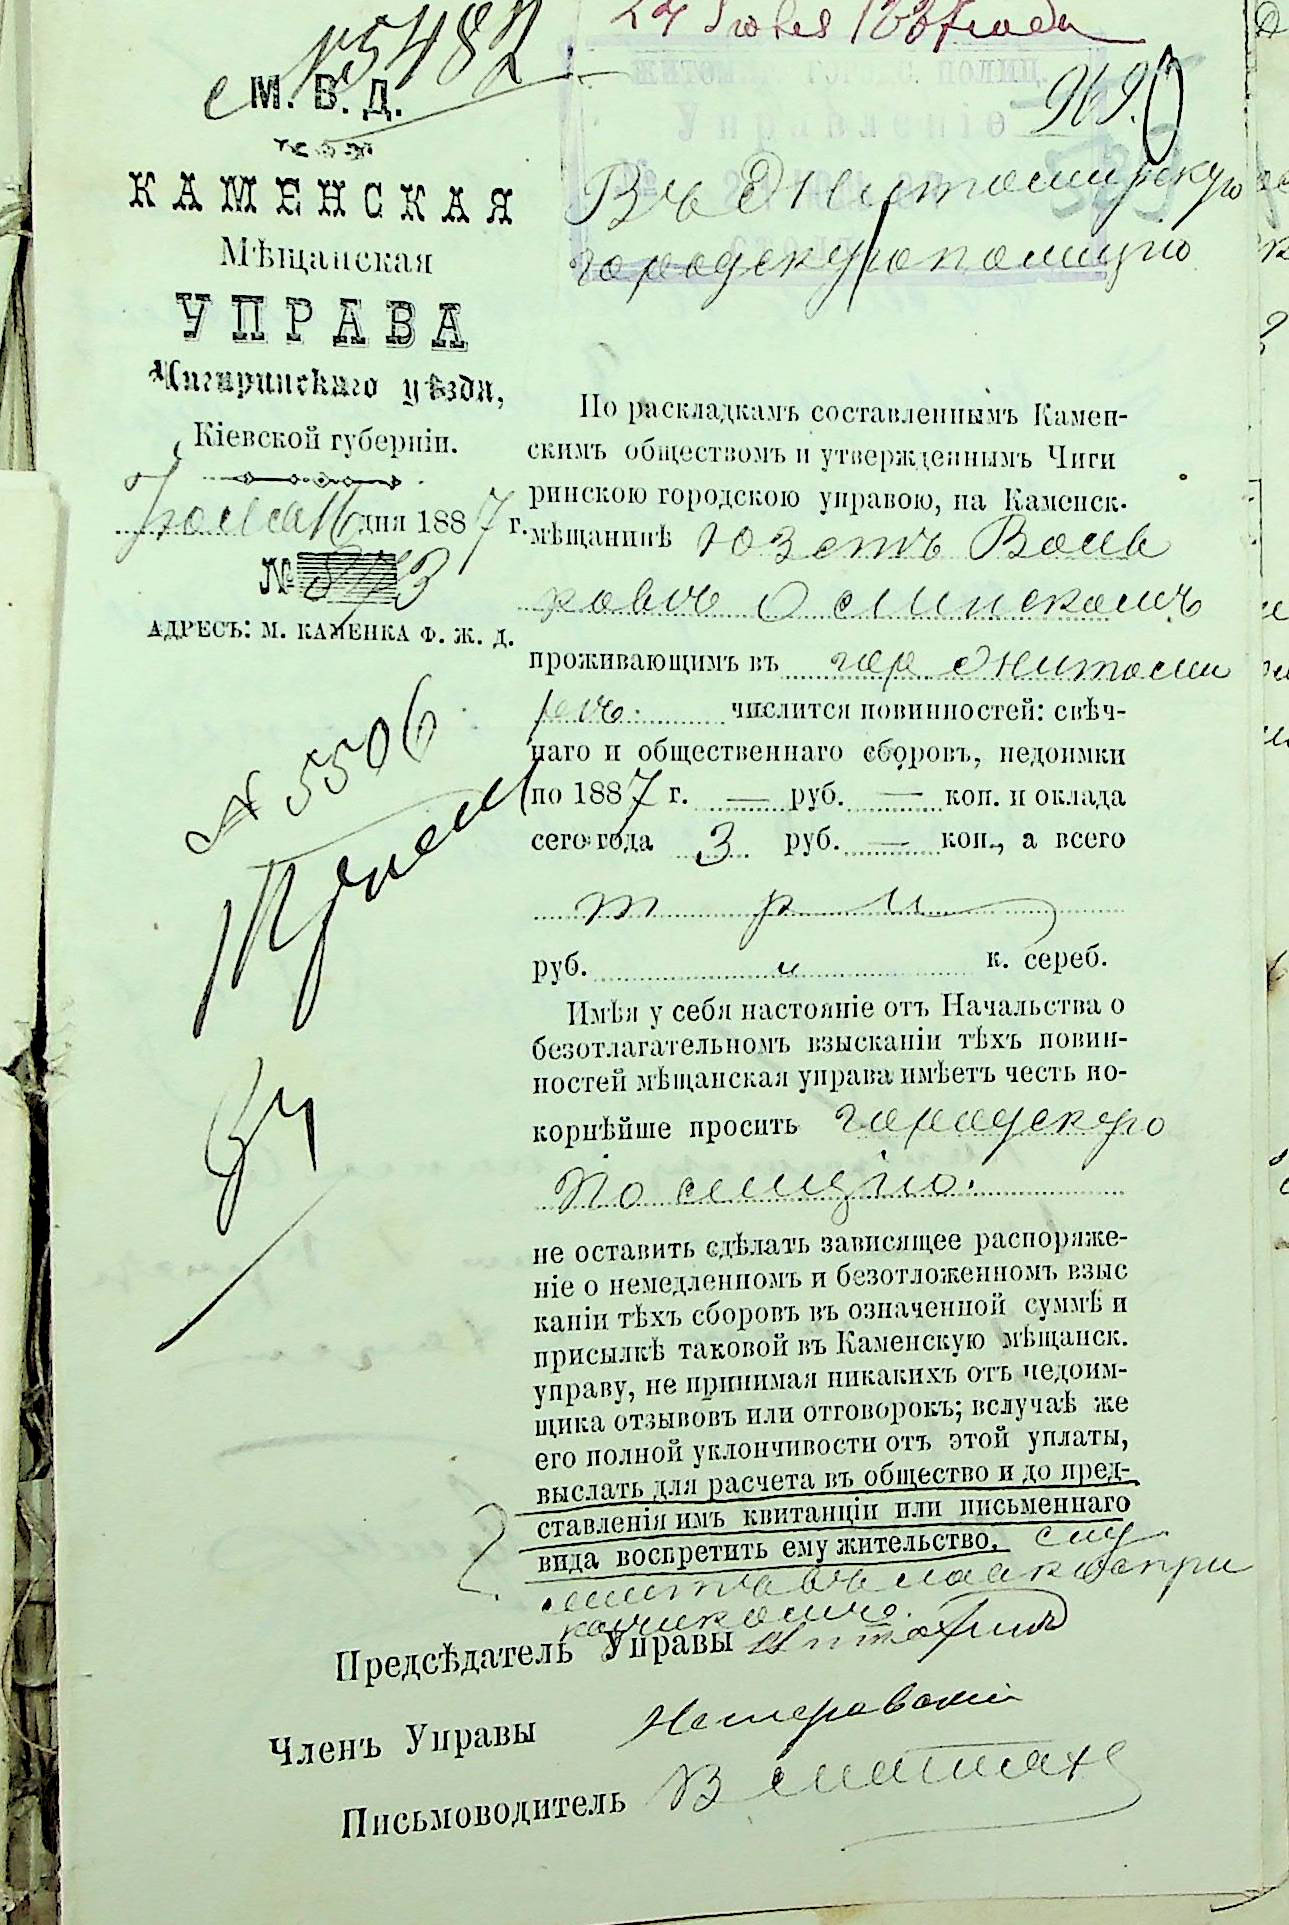 № 5482
24 Іюля 1887 года
М. В. Д.
ЖИТОМ. ГОРОДС. ПОЛИЦ.
Управленіе
КАМЕНСКАЯ
Мѣщанская
УПРАВА
Чигиринскаго уѣзда,
Кіевской губерніи.
Юля 16 дня 1887 г.
№ 873
АДРЕСЪ: М. КАМЕНКА Ф. Ж. Д.
№ 5506
Въ Житомирскую
городскую полицію
По раскладкамъ составленнымъ Камен-
скимъ обществомъ и утвержденнымъ Чиги
ринскою городскою управою, на Каменск.
мѣщанинѣ Юзетъ Воль
ковъ Осlинскомъ
проживающимъ въ гор Житоми
рѣ числится повинностей: свѣч-
наго и общественнаго сборовъ, недоимки
по 1887 г. — руб. — коп. и оклада
сего года 3 руб. — коп., а всего
три
руб. и к. сереб.
Имѣя у себя настояніе отъ Начальства о
безотлагательномъ взысканіи тѣхъ повин-
ностей мѣщанская управа имѣетъ честь по-
корнѣйше просить городскую
Полицію.
не оставить сдѣлать зависящее распоряже-
ніе о немедленномъ и безотложенномъ взыс
каніи тѣхъ сборовъ въ означенной суммѣ и
присылкѣ таковой въ Каменскую мѣщанск.
управу, не принимая никакихъ отъ недоим-
щика отзывовъ или отговорокъ; вслучаѣ же
его полной уклончивости отъ этой уплаты,
выслать для расчета въ общество и до пред-
ставленія имъ квитанціи или письменнаго
вида воспретить ему жительство.
Предсѣдатель Управы
Членъ Управы
Письмоводитель